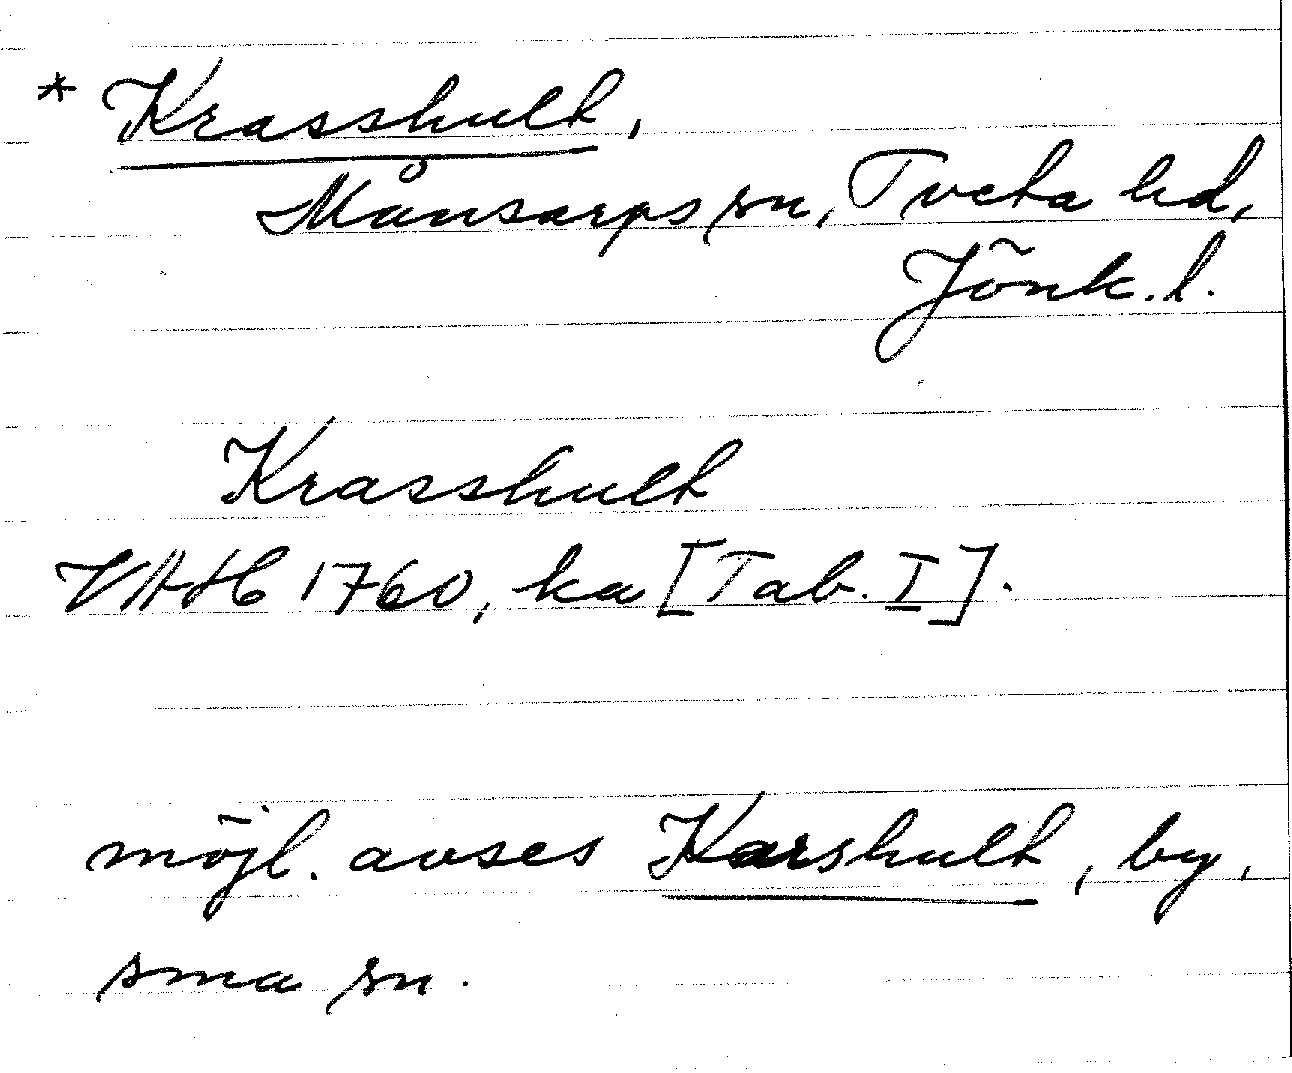 * Krasshult,
Månsarps sn, Tveta hd,
Jönk. l.
Krasshult
VAH 1760, ka [Tab. I].
möjl. avses Karshult, by,
sma sn.